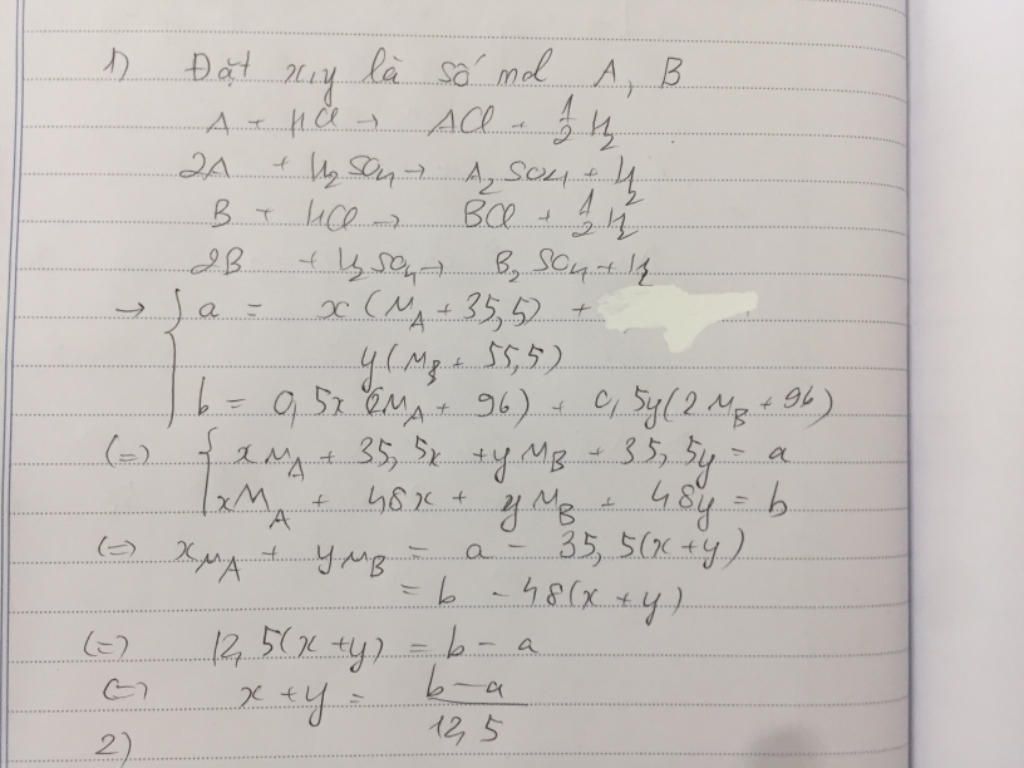 1) Đặt x,y là số mol A, B
A + HCl → ACl + 1/2 H₂
2A + H₂SO₄ → A₂SO₄ + H₂
B + HCl → BCl + 1/2 H₂
2B + H₂SO₄ → B₂SO₄ + H₂
→ { a = x(M_A + 35,5) +
y(M_B + 55,5)
b = 0,5x(2M_A + 96) + 0,5y(2M_B + 96)
(=) { xM_A + 35,5x + yM_B + 35,5y = a
xM_A + 48x + yM_B + 48y = b
(=) xM_A + yM_B = a - 35,5(x+y)
= b - 48(x+y)
(=) 12,5(x+y) = b - a
(=) x + y = (b-a)/12,5
2)